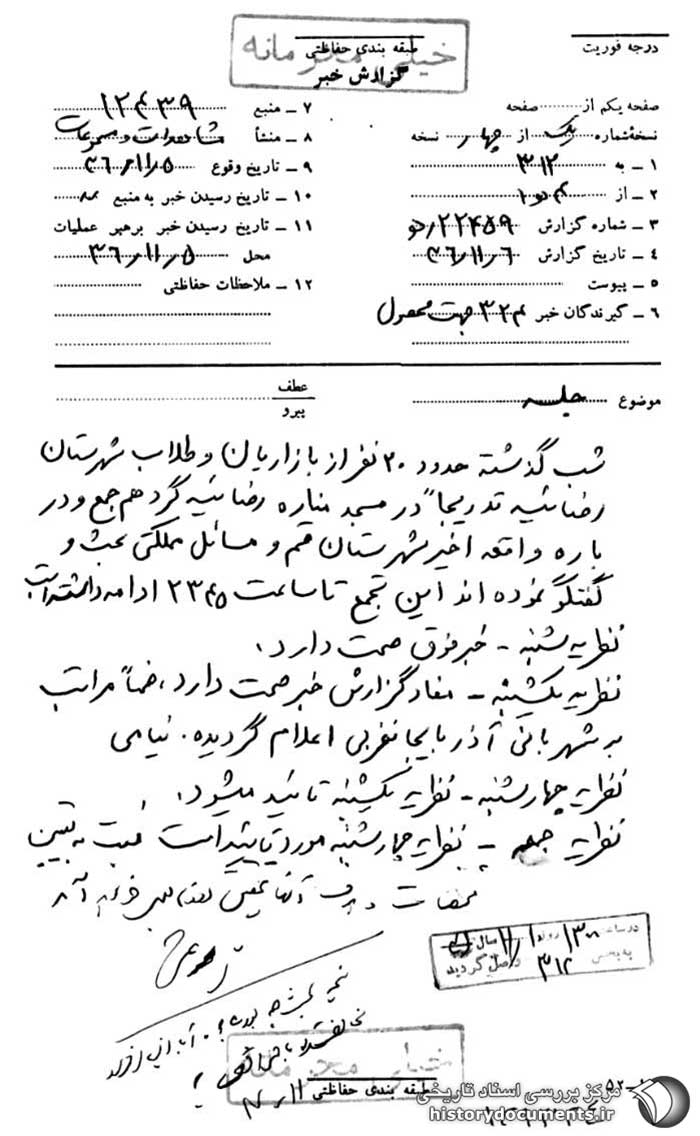 خیلی محرمانه
طبقه بندی حفاظتی
گزارش خبر
درجه فوریت
صفحه یکم از صفحه
نسخهٔ شماره یک از چهار نسخه
۱ ـ به ۳۱۲
۲ ـ از
۳ ـ شماره گزارش ۲۲۴۵۹
۴ ـ تاریخ گزارش ۳۶/۱۱/۶
۵ ـ پیوست
۶ ـ گیرندگان خبر جهت محصول
۷ ـ منبع ۱۲۴۳۹
۸ ـ منشأ مشاهدات و مسموعات
۹ ـ تاریخ وقوع ۳۶/۱۱/۵
۱۰ ـ تاریخ رسیدن خبر به منبع
۱۱ ـ تاریخ رسیدن خبر برهبر عملیات
محل ۳۶/۱۱/۵
۱۲ ـ ملاحظات حفاظتی
موضوع جلسه
عطف
پیرو
شب گذشته حدود ۲۰ نفر از بازاریان و طلاب شهرستان
رضائیه تدریجاً در مسجد مناره رضائیه گرد هم جمع و در
باره واقعه اخیر شهرستان قم و مسائل مملکتی بحث و
گفتگو نموده اند این تجمع تا ساعت ۲۳۴۵ ادامه داشته است
نظریه شنبه ـ خبر فوق صحت دارد.
نظریه یکشنبه ـ مفاد گزارش خبر صحت دارد، ضمناً مراتب
به شهربانی آذربایجانغربی اعلام گردیده. نیامی
نظریه چهارشنبه ـ نظریه یکشنبه تائید میشود.
نظریه جمعه ـ نظریه چهارشنبه مورد تایید است نسبت به تعیین
آنها
در ساعت ۱۳۰۰ روز سال
به بخش ۳۱۲ واصل گردید
نتیجه
طبقه بندی حفاظتی
مرکز بررسی اسناد تاریخی
historydocuments.ir